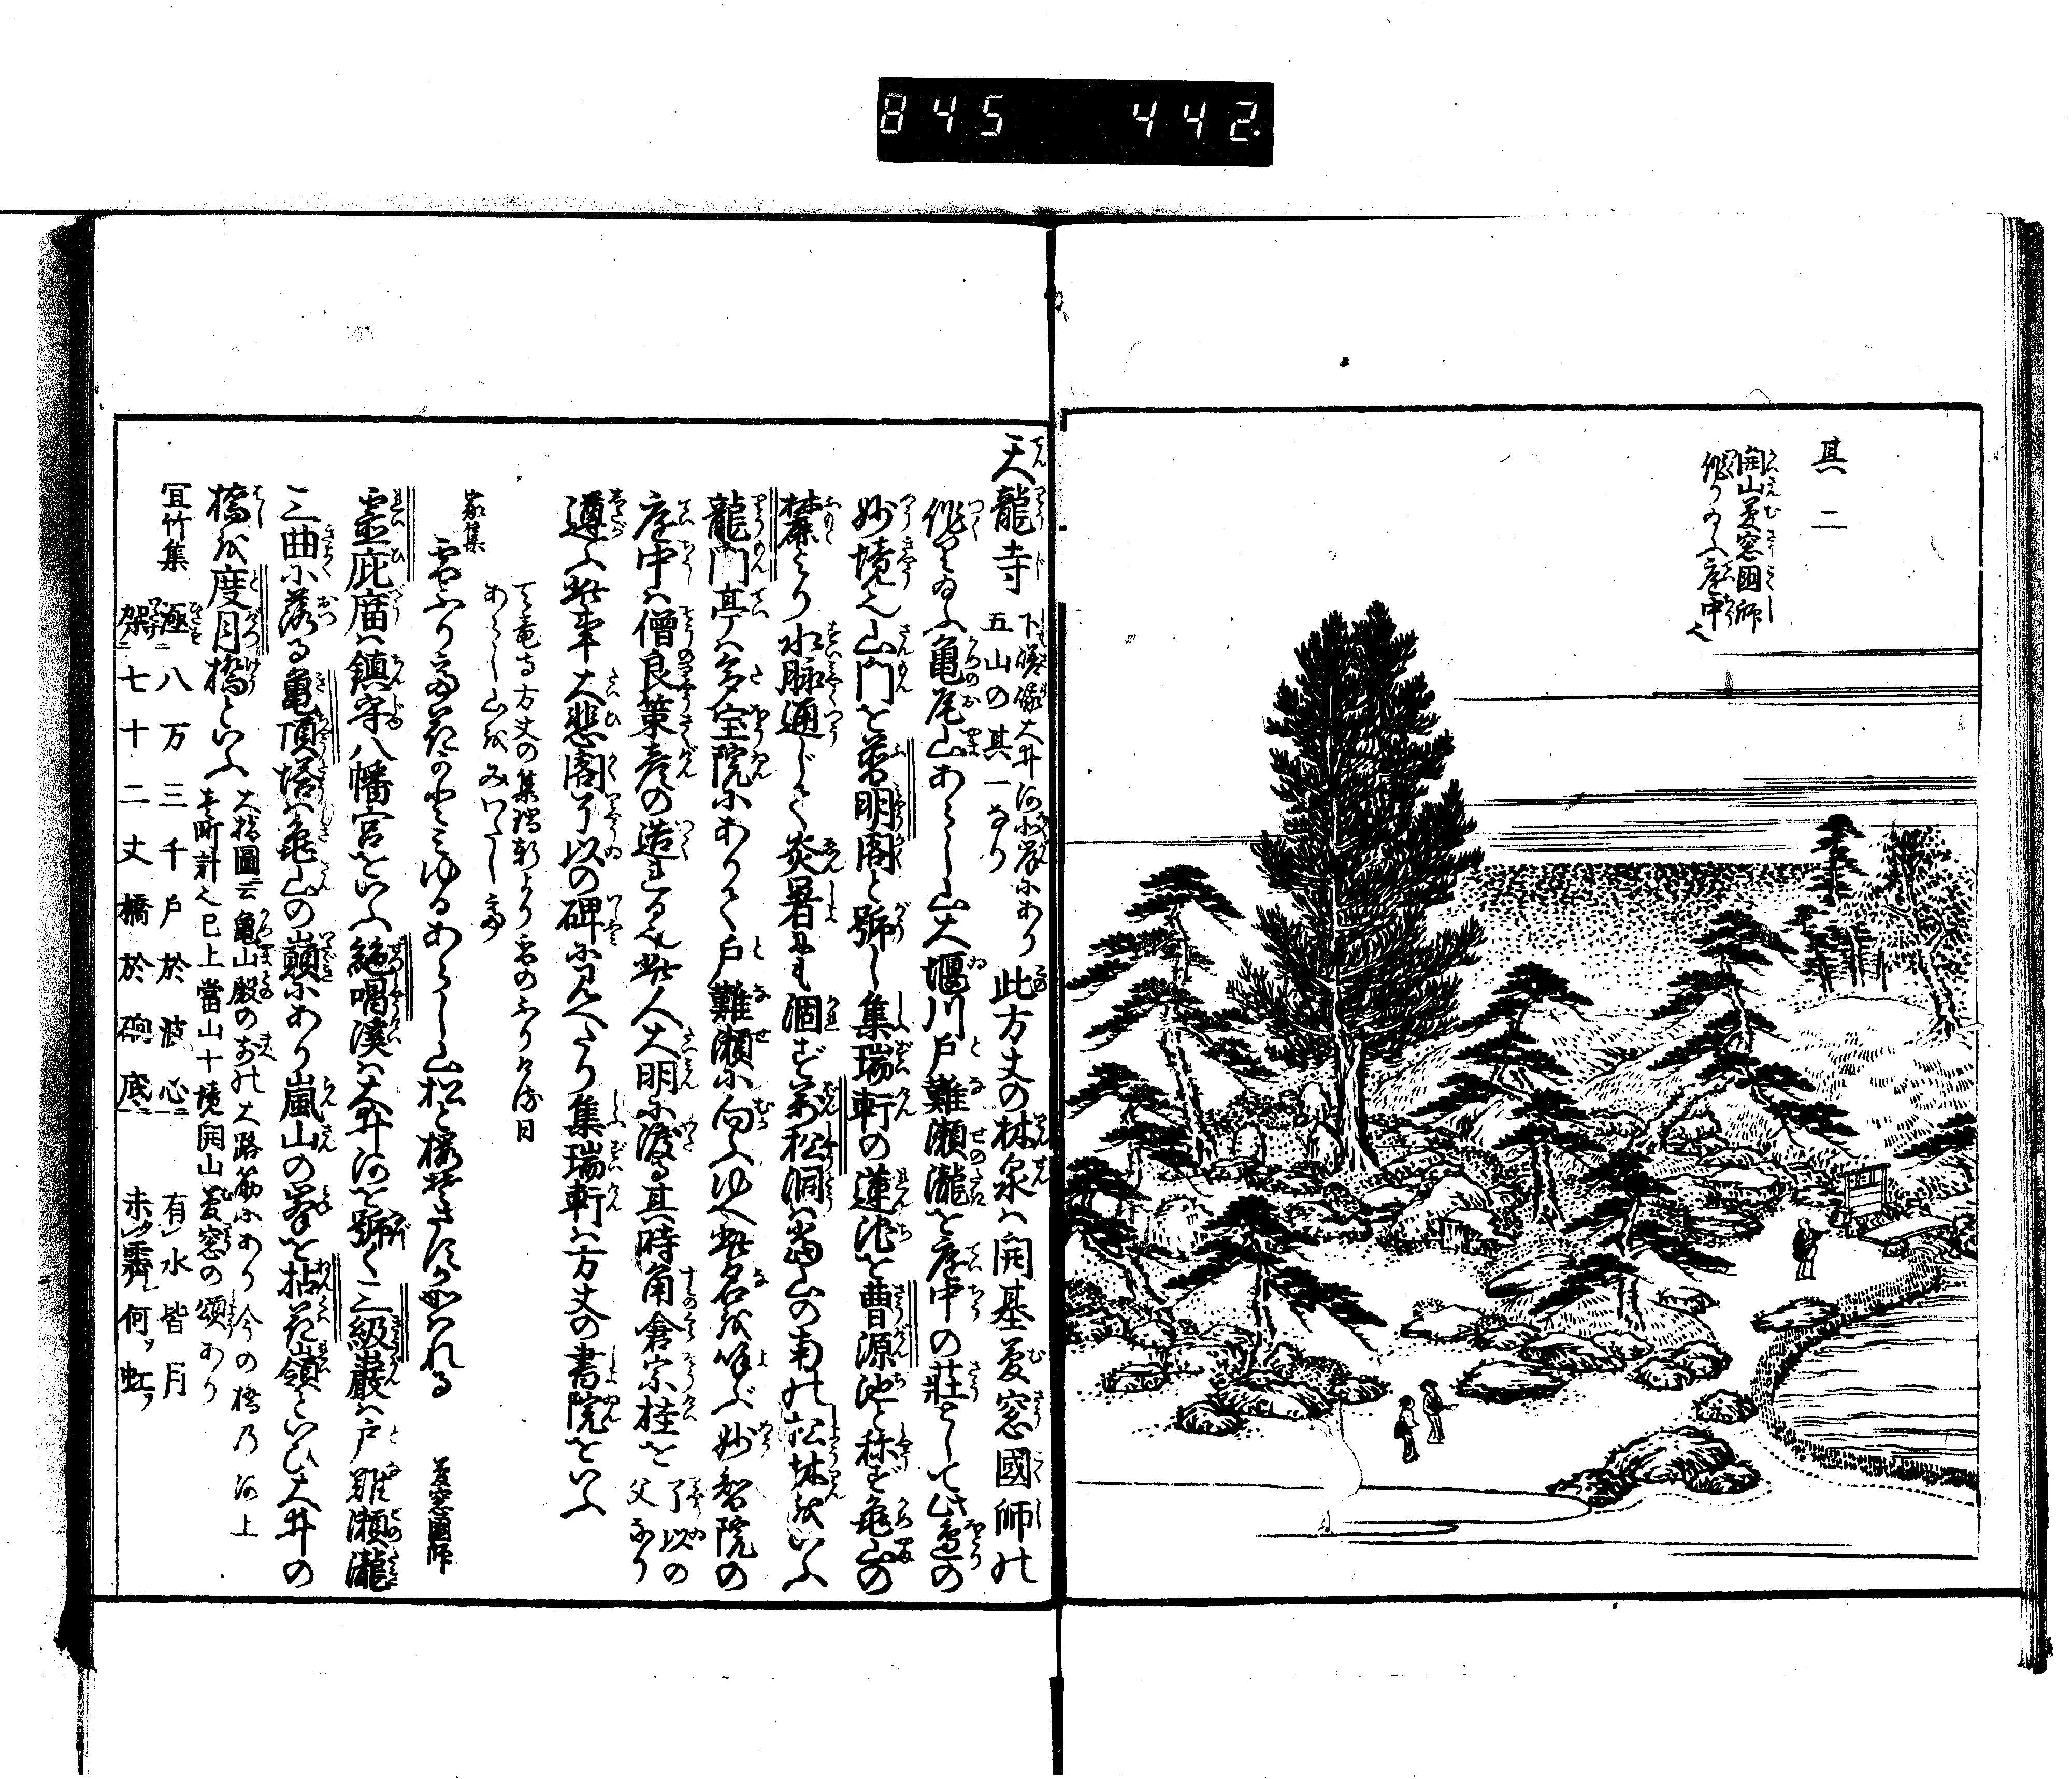 845 442.
其二
開山夢窓国師
作り給ふ庭中也
天龍寺 下嵯峨大井河北岸にあり
五山の其一なり
此方丈の林泉ハ開基夢窓國師の
作りたまふ亀尾山あらし山大堰川戸難瀬瀧を庭中の荘として此邉の
妙境也山門を普明閣と號し集瑞軒の蓮池を曹源池と称ず亀山の
麓より水脉通じて炎暑にも涸ず萬松洞ハ當山の南の松林をいふ
龍門亭ハ多宝院にありて戸難瀬に向ふゆへ此名を呼ぶ妙智院の
庭中ハ僧良策彦の造るところ也此人大明に渡る其時角倉宗桂を
了以の
父なり
遵ふ此事大悲閣了以の碑に見へたり集瑞軒ハ方丈の書院をいふ
天竜寺方丈の集瑞軒より雪のふりける日
あらし山をみいだして
家集
雪ふりて花かとみゆるあらし山松と桜ぞ
夢窓國師
霊庇廟ハ鎮守八幡宮をいふ絶唱溪ハ大井河を號く三級巖ハ戸難瀬瀧
三曲に落る亀頂塔ハ亀山の巓にあり嵐山の峯を拈花嶺といひ大井の
橋を度月橋といふ
大指圖云亀山殿の前の大路筋にあり今の橋乃河上
壱町計也已上當山十境開山夢窓の頌あり
冝竹集
極八万三千戸於波心 有水皆月
架七十二丈橋於砌底 未霽何虹